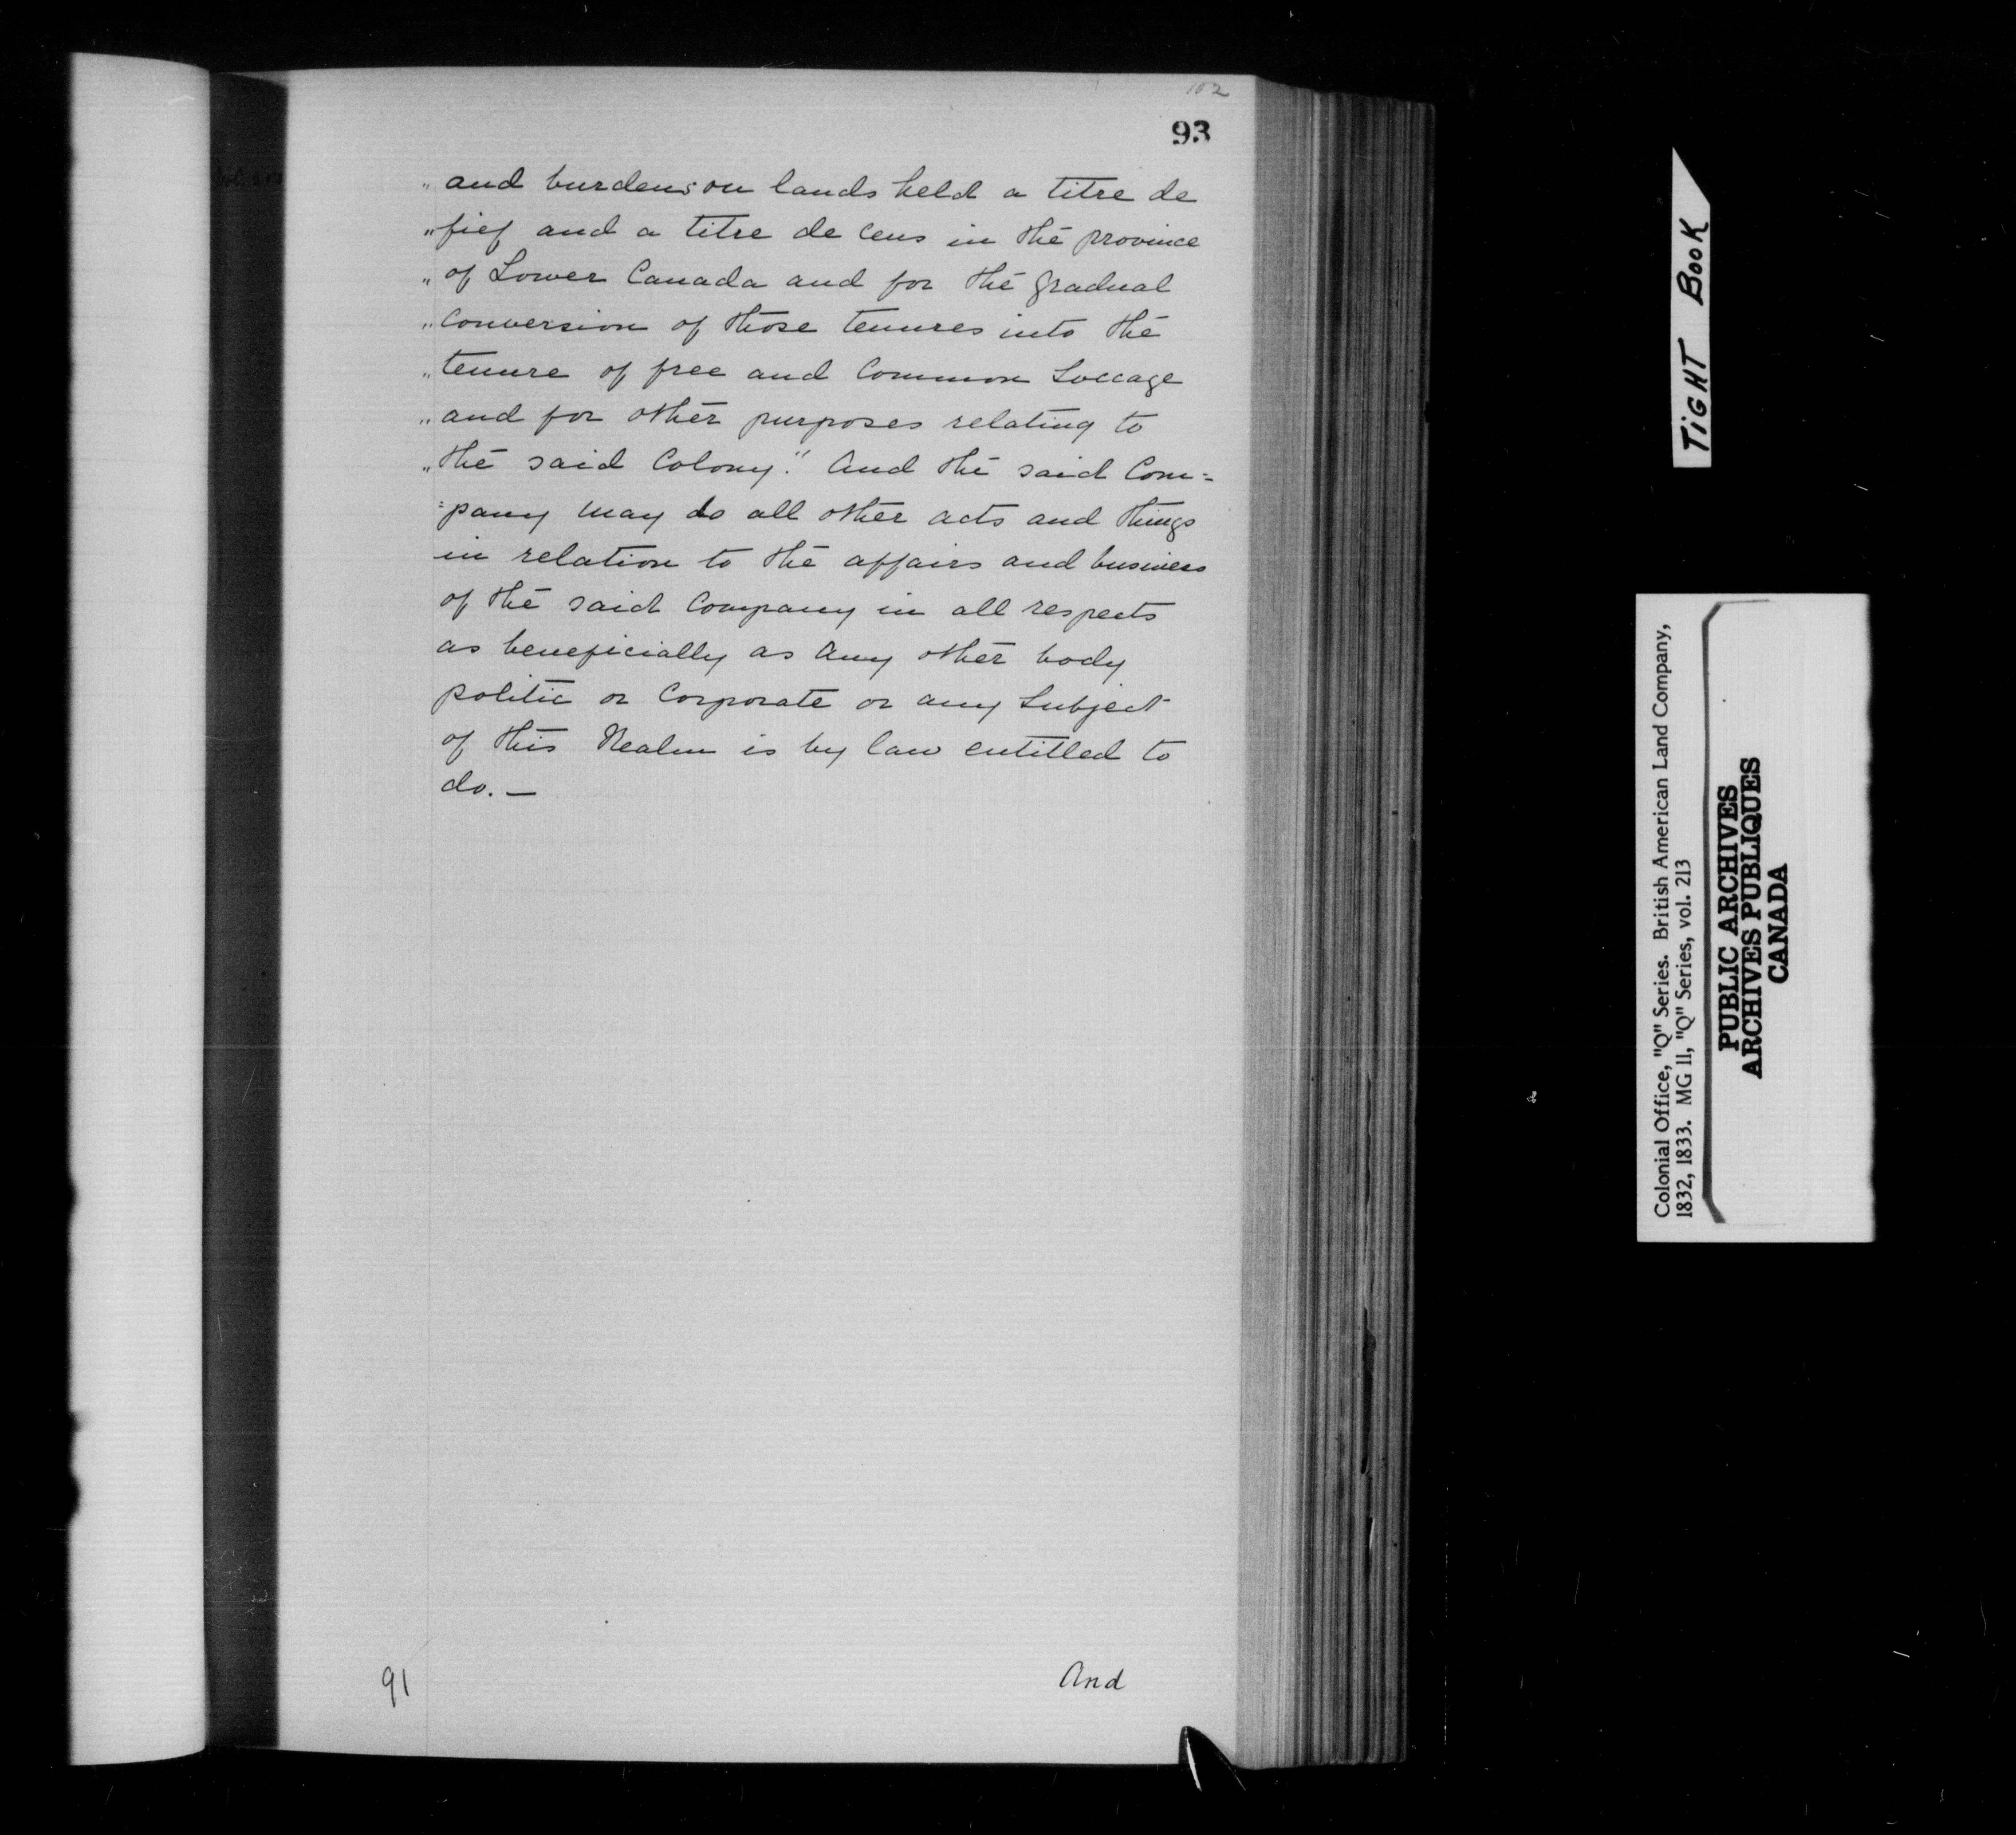 102
93
" and burdens on lands held a titre de
" fief and a titre de cens in the province
" of Lower Canada and for the gradual
" conversion of those tenures into the
" tenure of free and Common Soccage
" and for other purposes relating to
" the said Colony." And the said Com=
=pany may do all other acts and things
in relation to the affairs and business
of the said Company in all respects
as beneficially as any other body
politic or Corporate or any Subject
of this Realm is by law entitled to
do. —
91
And
TIGHT BOOK
Colonial Office, "Q" Series. British American Land Company,
1832, 1833. MG 11, "Q" Series, vol. 213
PUBLIC ARCHIVES
ARCHIVES PUBLIQUES
CANADA